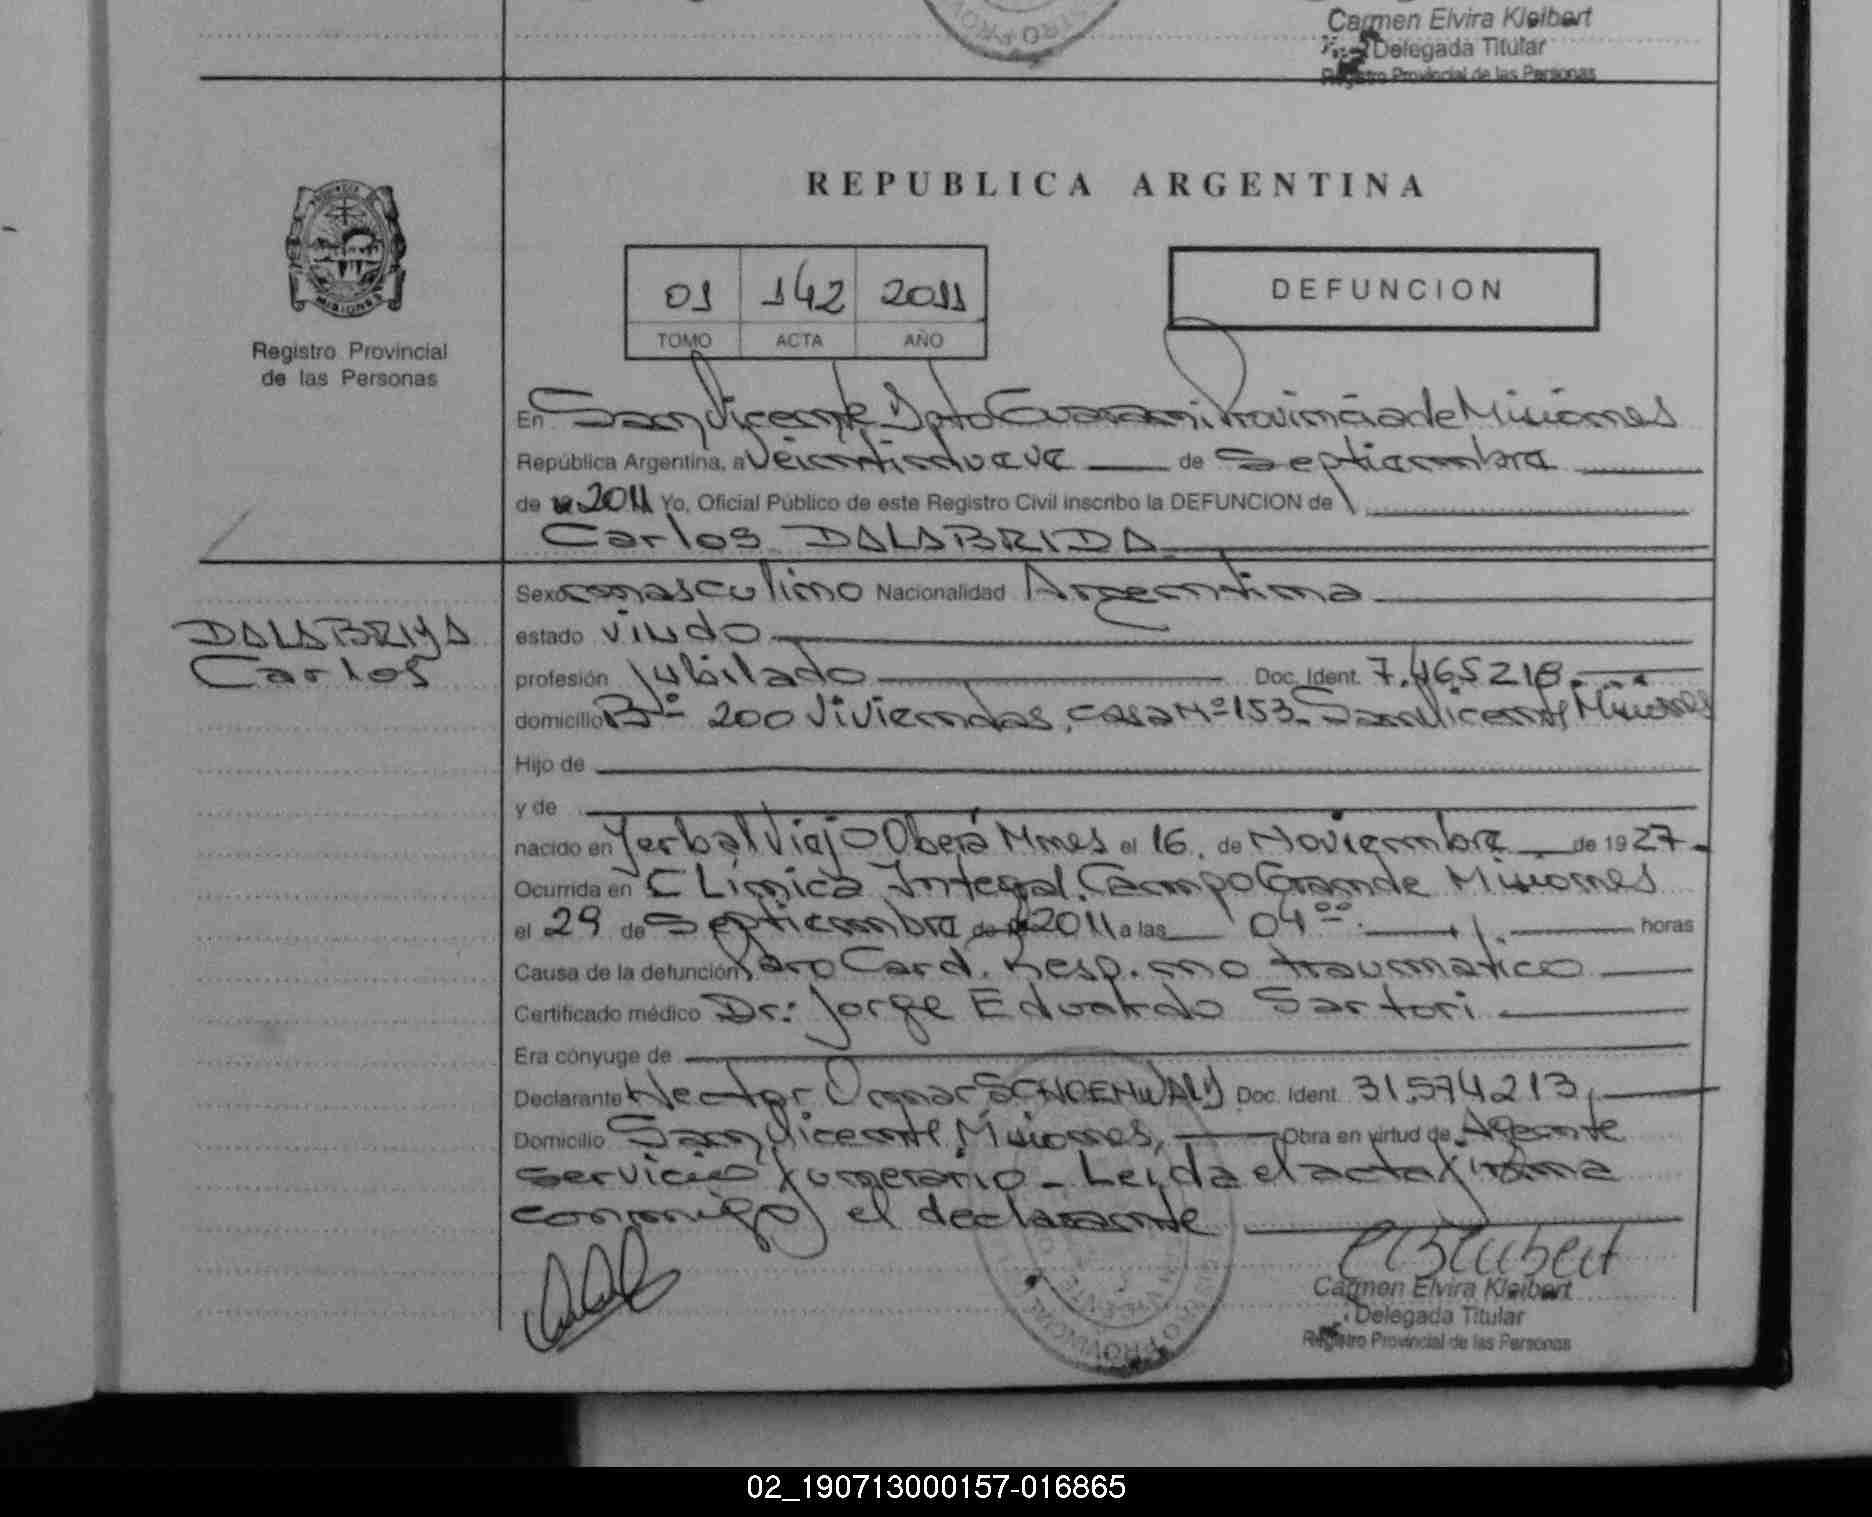 Carmen Elvira Kleibert
Delegada Titular
Registro Provincial de las Personas
REPUBLICA ARGENTINA
MISIONES
Registro Provincial
de las Personas
01 142 2011
TOMO ACTA AÑO
DEFUNCION
En San Vicente Dpto Guarani Provincia de Misiones
República Argentina, a Veintinueve de Septiembre
de 2011 Yo, Oficial Público de este Registro Civil inscribo la DEFUNCION de
Carlos DALABRIDA
Sexo masculino Nacionalidad Argentina
DALABRIDA
Carlos
estado viudo
profesión jubilado Doc. Ident. 7.465218
domicilio Bº 200 Viviendas, casa Nº 153 San Vicente Misiones
Hijo de
y de
nacido en Yerbal Viejo Oberá Mnes el 16. de Noviembre de 1927.
Ocurrida en CLinica Integal. Campo Grande Misiones
el 29 de Septiembre de 2011 a las 04ºº horas
Causa de la defunción Paro Card. Resp. no traumatico
Certificado médico Dr: Jorge Eduardo Sartori
Era cónyuge de
Declarante Hector Omar SCHOENWALD Doc. Ident. 31.574213
Domicilio San Vicente Misiones, Obra en virtud de Agente
servicio funerario - Leida el acta firma
conmigo el declarante
Carmen Elvira Kleibert
Delegada Titular
Registro Provincial de las Personas
02_190713000157-016865